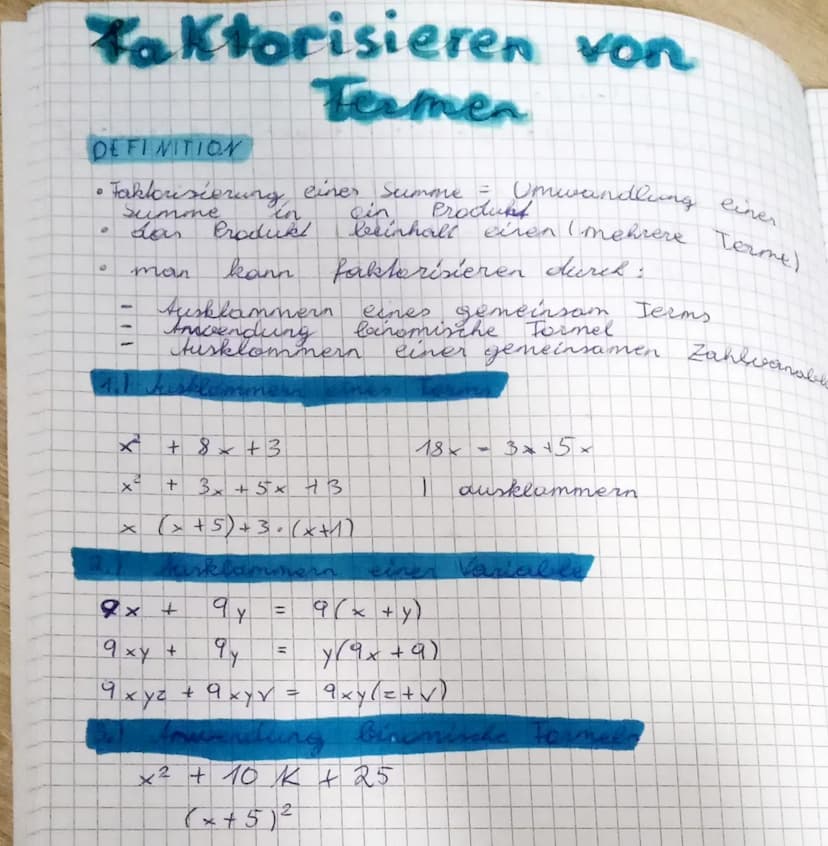 Faktorisieren von
Termen
DEFINITION
• Faktorisierung einer Summe = Umwandlung einer
Summe in ein Produkt
• das Produkt beinhalt einen (mehrere Terme)
• man kann faktorisieren durch:
- Ausklammern eines gemeinsam Terms
- Anwendung binomische Formel
- Ausklammern einer gemeinsamen Zahlvariable
1.) Ausklammern eines Terms
x² + 8x + 3 18x = 3x + 5x
x² + 3x + 5x + 3 | ausklammern
x (x + 5) + 3 · (x + 1)
2.) Ausklammern einer Variable
9x + 9y = 9(x + y)
9xy + 9y = y(9x + 9)
9xyz + 9xyv = 9xy(z + v)
3.) Anwendung binomische Formeln
x² + 10 K + 25
(x + 5)²